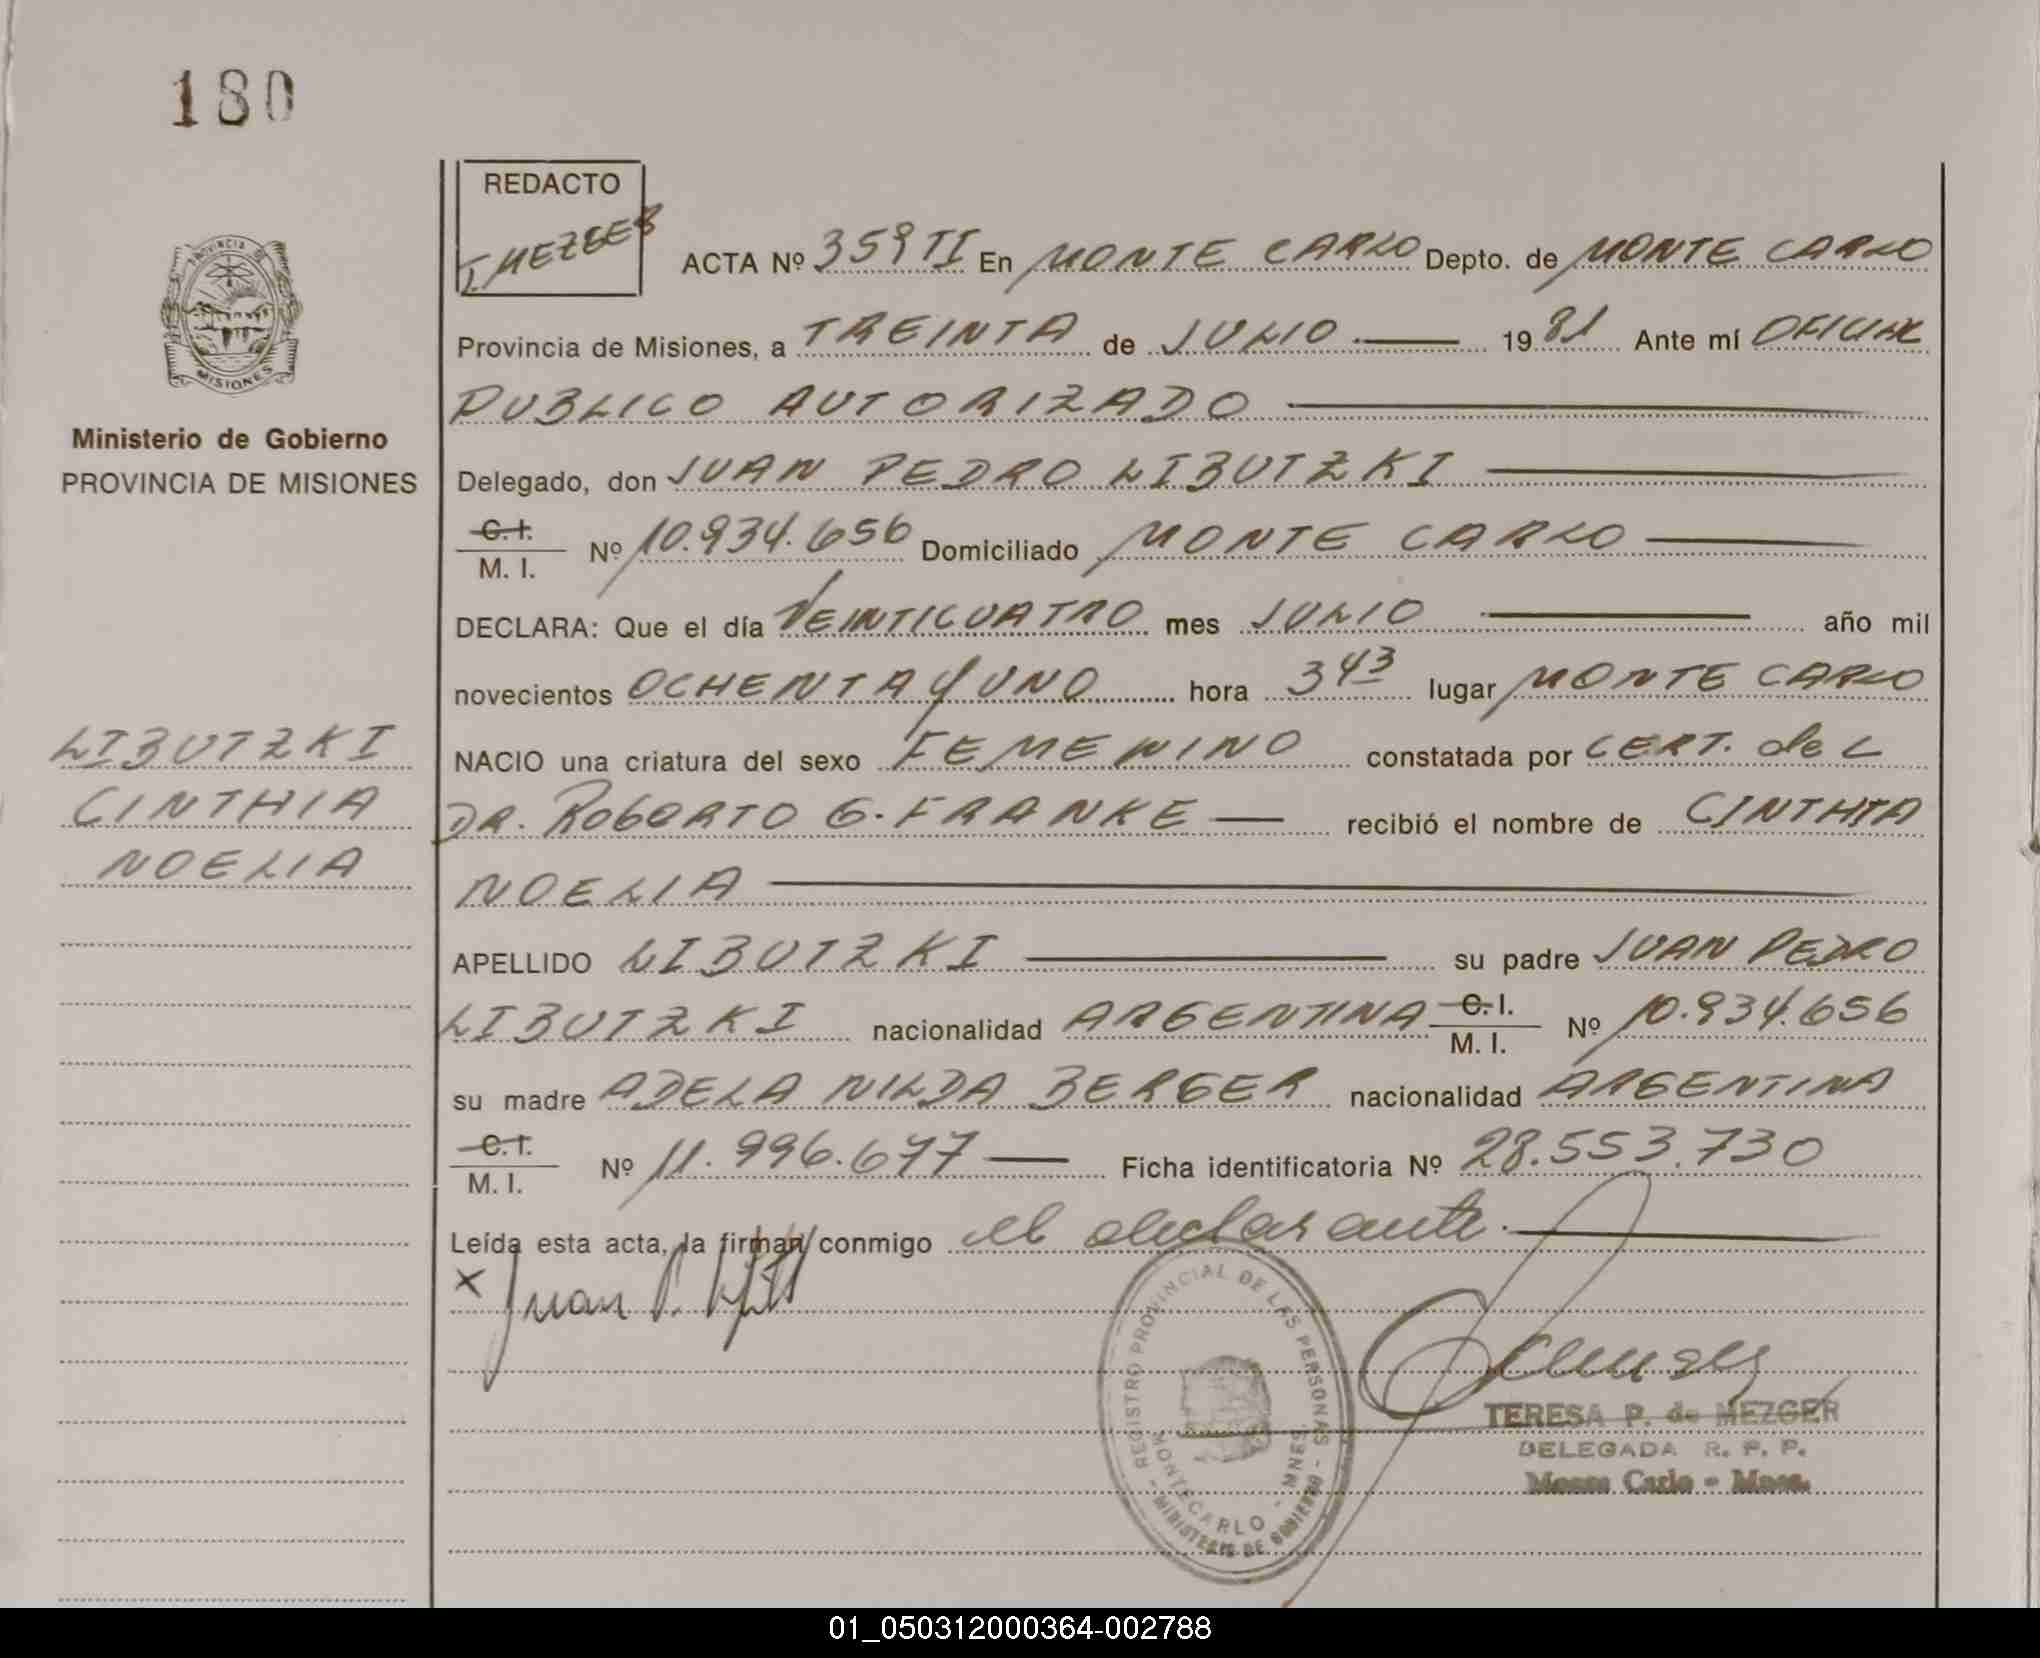 180
REDACTO
T. MEZGER
ACTA Nº 359 TI En MONTE CARLO Depto. de MONTE CARLO
Provincia de Misiones, a TREINTA de JULIO 1981 Ante mí OFICIAL
PUBLICO AUTORIZADO
Delegado, don JUAN PEDRO LIBUTZKI
C.I. M. I. Nº 10.934.656 Domiciliado MONTE CARLO
DECLARA: Que el día VEINTICUATRO mes JULIO año mil
novecientos OCHENTA y UNO hora 3 43 lugar MONTE CARLO
NACIO una criatura del sexo FEMENINO constatada por CERT. del
DR. ROBERTO G. FRANKE recibió el nombre de CINTHIA
NOELIA
APELLIDO LIBUTZKI su padre JUAN PEDRO
LIBUTZKI nacionalidad ARGENTINA C.I. M. I. Nº 10.934.656
su madre ADELA NILDA BERGER nacionalidad ARGENTINA
C.I. M. I. Nº 11.996.677 Ficha identificatoria Nº 28.553.730
Leída esta acta, la firman conmigo el declarante.
x Juan P.
PROVINCIA DE
MISIONES
Ministerio de Gobierno
PROVINCIA DE MISIONES
LIBUTZKI
CINTHIA
NOELIA
- REGISTRO PROVINCIAL DE LAS PERSONAS -
MONTECARLO - MNES.
MINISTERIO DE GOBIERNO
TERESA P. de MEZGER
DELEGADA R. P. P.
Monte Carlo - Mnes.
01_050312000364-002788